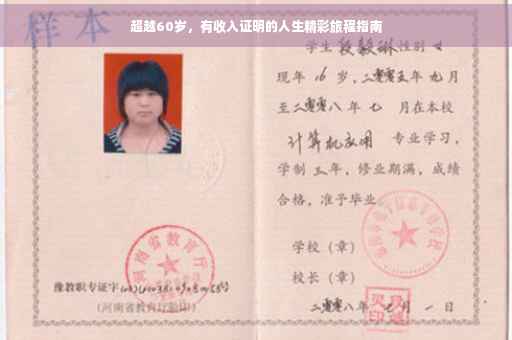 超越60岁，有收入证明的人生精彩旅程指南
样本
学生 段毅琳 性别 女
现年 16 岁，二零零五年 九 月
至二零零八年 七 月在本校
计算机应用 专业学习，
学制 三 年，修业期满，成绩
合格，准予毕业
学校（章）
校长（章）
二零零八年 月 一 日
河南省教育厅
豫教职专证字
（河南省教育厅验印）